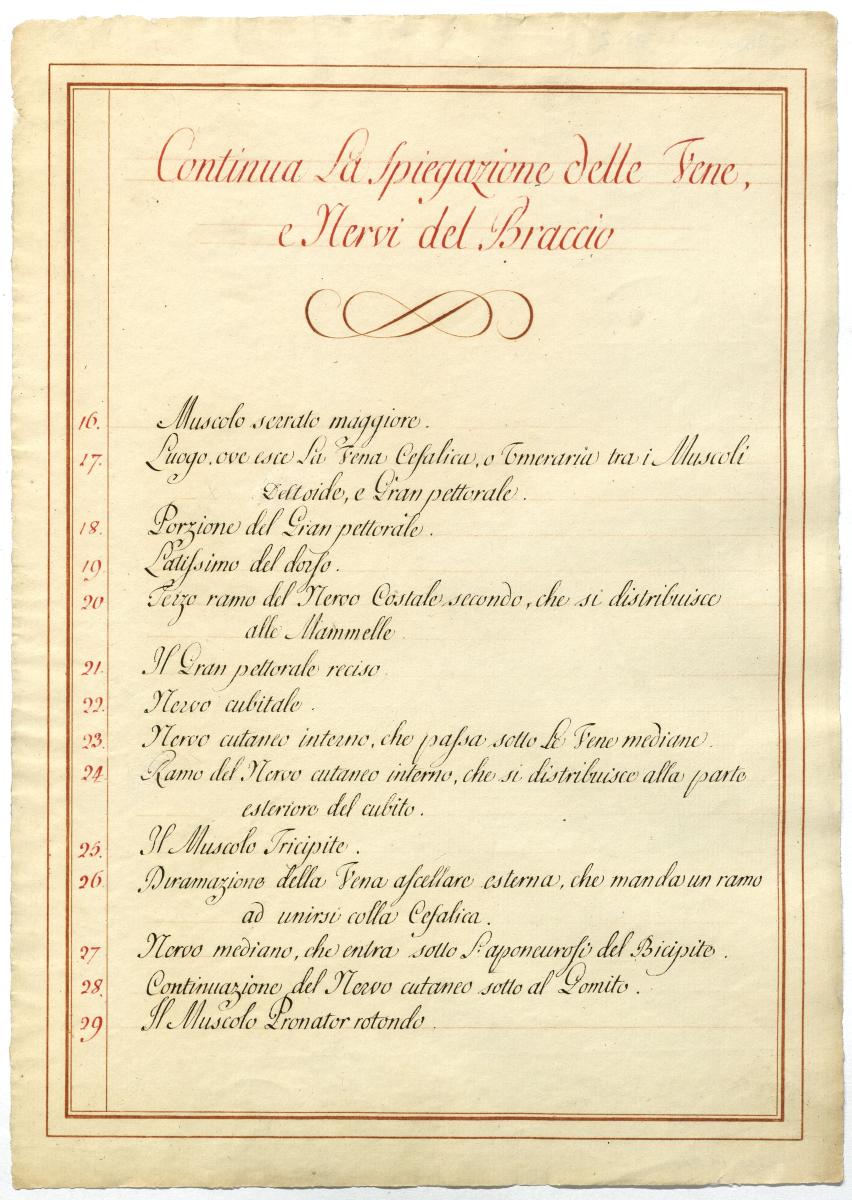 Continua La Spiegazione delle Vene,
e Nervi del Braccio
16. Muscolo serrato maggiore.
17. Luogo, ove esce La Vena Cefalica, o Umeraria tra i Muscoli
Deltoide, e Gran pettorale.
18. Porzione del Gran pettorale.
19 Latissimo del dorso.
20 Terzo ramo del Nervo Costale secondo, che si distribuisce
alle Mammelle.
21. Il Gran pettorale reciso.
22. Nervo cubitale.
23. Nervo cutaneo interno, che passa sotto Le Vene mediane.
24. Ramo del Nervo cutaneo interno, che si distribuisce alla parte
esteriore del cubito.
25. Il Muscolo Tricipite.
26. Diramazione della Vena ascellare esterna, che manda un ramo
ad unirsi colla Cefalica.
27 Nervo mediano, che entra sotto L'aponeurosi del Bicipite.
28. Continuazione del Nervo cutaneo sotto al Gomito.
29 Il Muscolo Pronator rotondo.